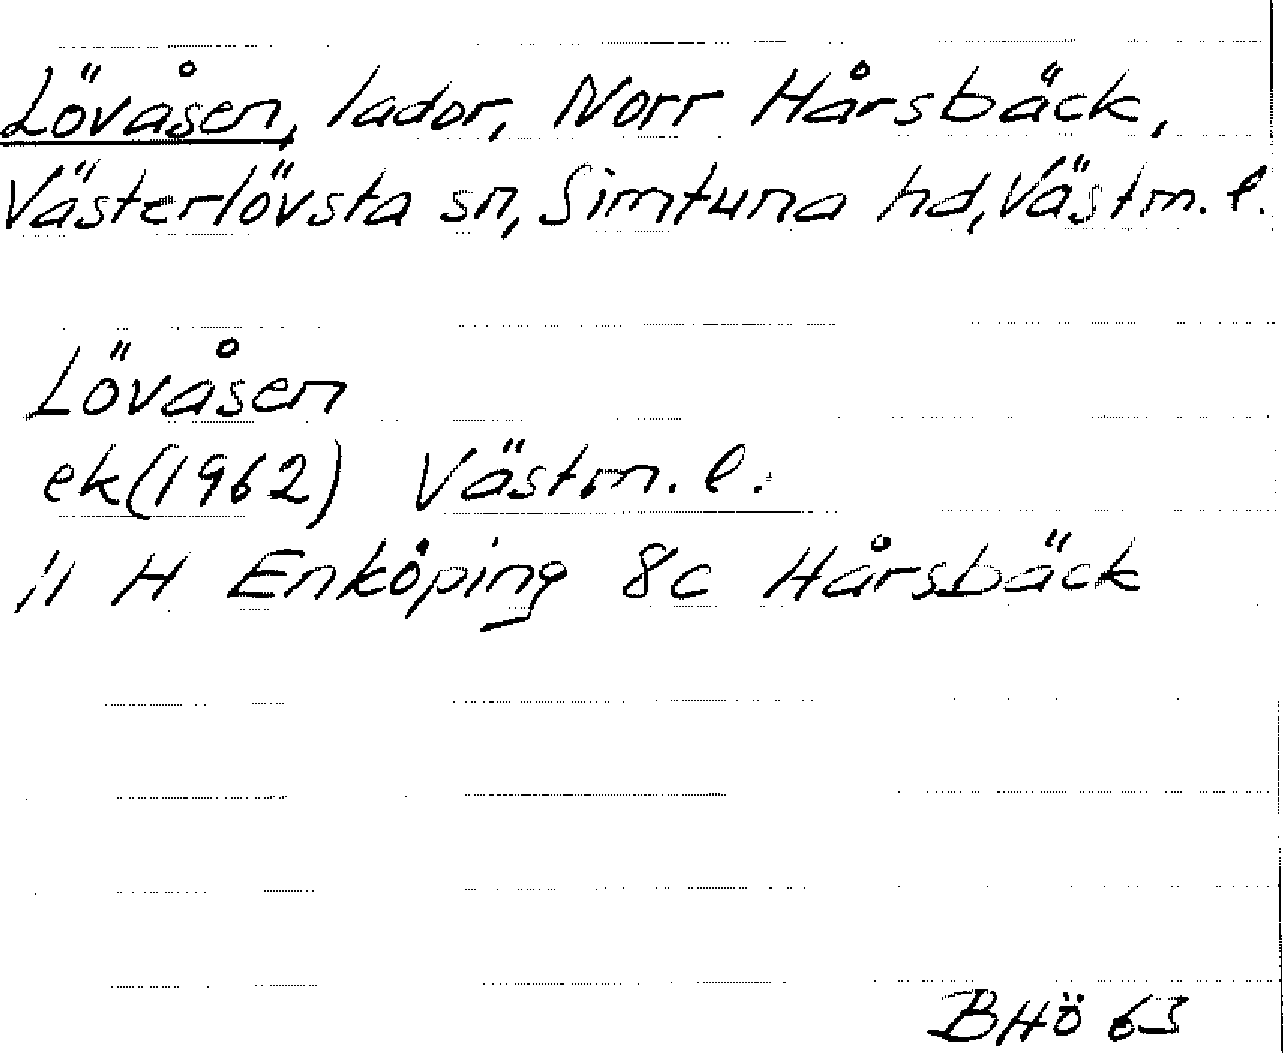 Lövåsen, lador, Norr Hårsbäck,
Västerlövsta sn, Simtuna hd, Västm. l.
Lövåsen
ek(1962) Västm. l.
11 H Enköping 8c Hårsbäck
BHö 63